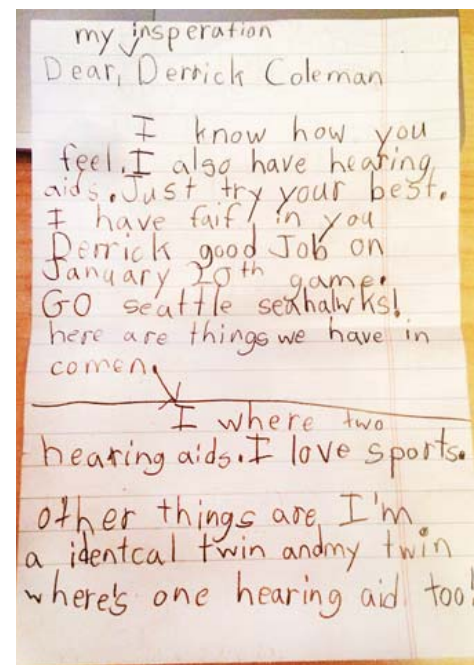 my insperation
Dear, Derrick Coleman
I know how you
feel. I also have hearing
aids. Just try your best.
I have faif in you
Derrick good Job on
January 20th game.
GO seattle seahalwks!
here are things we have in
comen.
I where two
hearing aids. I love sports.
other things are, I'm
a identcal twin andmy twin
where's one hearing aid too!